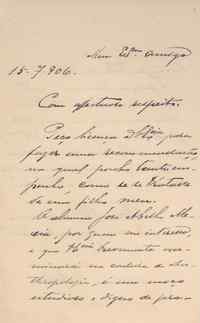 Meu Exmo amigo
15-7-906.
Com affectuoso respeito.
Peço licença a V. Excia para
fazer uma recommendação,
na qual ponho tanto em-
penho, como se se tratasse
de um filho meu.
O alumno José
por quem me interesso,
e que V. Excia
na cadeira de An-
thropologia, é um moço
estudioso e digno de